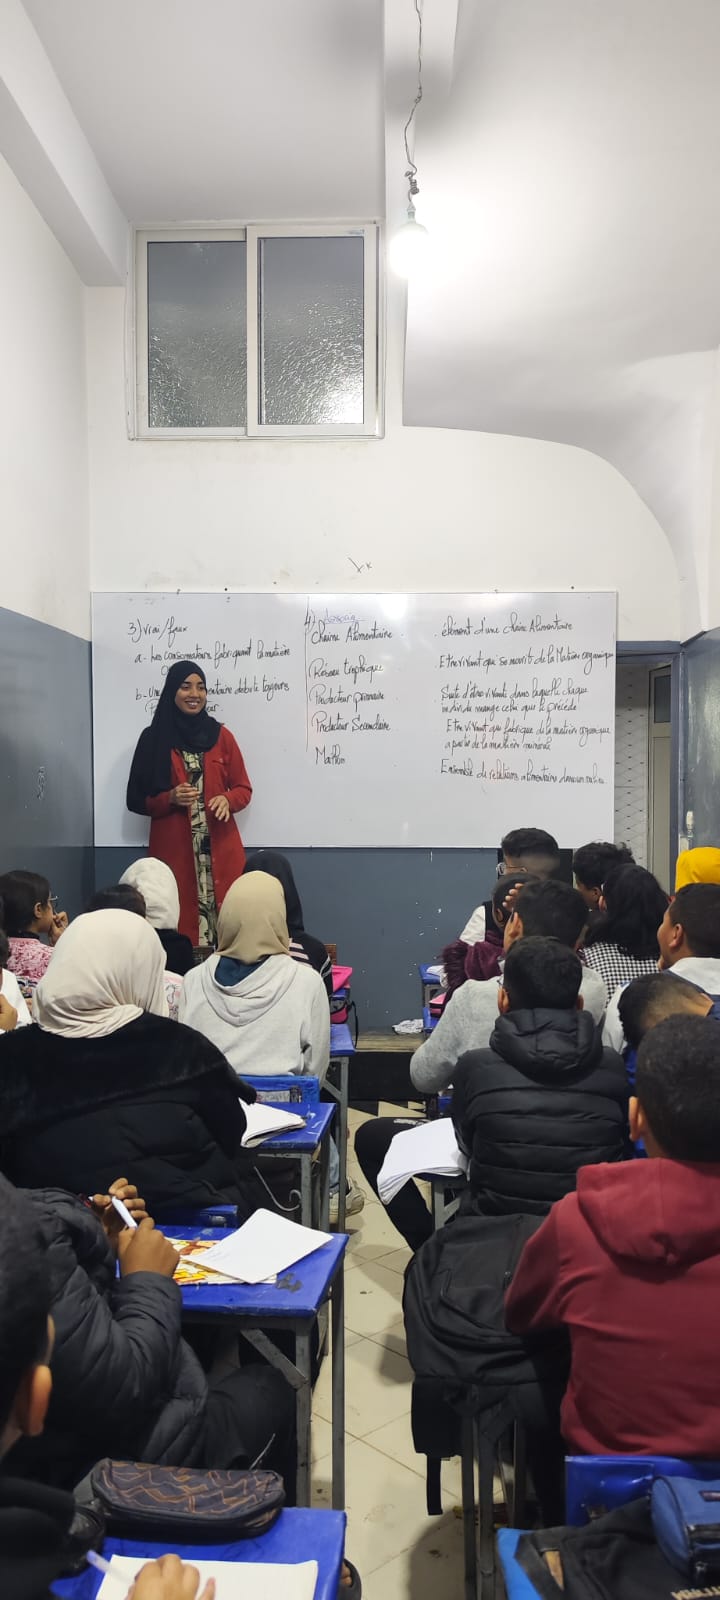 3) vrai/faux
a- Les consommateurs fabriquent la matière
b- Une
toujours
4)
Chaine Alimentaire
Réseau trophique
Producteur primaire
Producteur Secondaire
Maillon
. élément d'une chaine Alimentaire
. Etre vivant qui se nourrit de la Matière organique
. Suite d'être vivants dans laquelle chaque
individu mange celui qui le précède
. Etre vivant qui fabrique de la matière organique
a partir de la matière minérale
. Ensemble de relations alimentaires dans un milieu